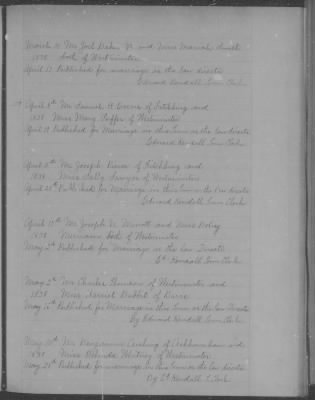 March 31 Mr Joel Baker Jr. and Miss Mariah Smith
1838 both of Westminster
April 17 Published for marriage as the Law directs
Edward Kendall Town Clerk
April 8th Mr Samuel H Evens of Fitchburg and
1838 Miss Mary Puffer of Westminster
April 21 Published for Marriage in this Town as the Law directs
Edward Kendall Town Clerk
April 8th Mr Joseph Pierce of Fitchburg and
1838 Miss Sally Sawyer of Westminster
April 25th Published for Marriage in this Town as the Law directs
Edward Kendall Town Clerk
April 15th Mr Joseph W. Merritt and Miss Dolley
1838 Merriam both of Westminster
May 2d Published for Marriage as the Law Directs
Ed Kendall Town Clerk
May 2d Mr Charles of Westminster and
1838 Miss Harriet Babbit of Barre
May 16th Published for Marriage in this Town as the Law Directs
by Edward Kendall Town Clerk
May 10th Mr Benjamin Cushing of Ashburnham and
1838 Miss Belinda Whitney of Westminster
May 25th Published for marriage in this Town as the Law directs
By Ed Kendall T. Clerk